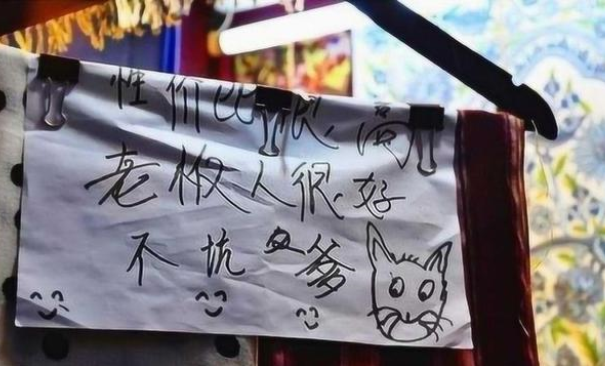 性价比很高
老椒人很好
不坑爹